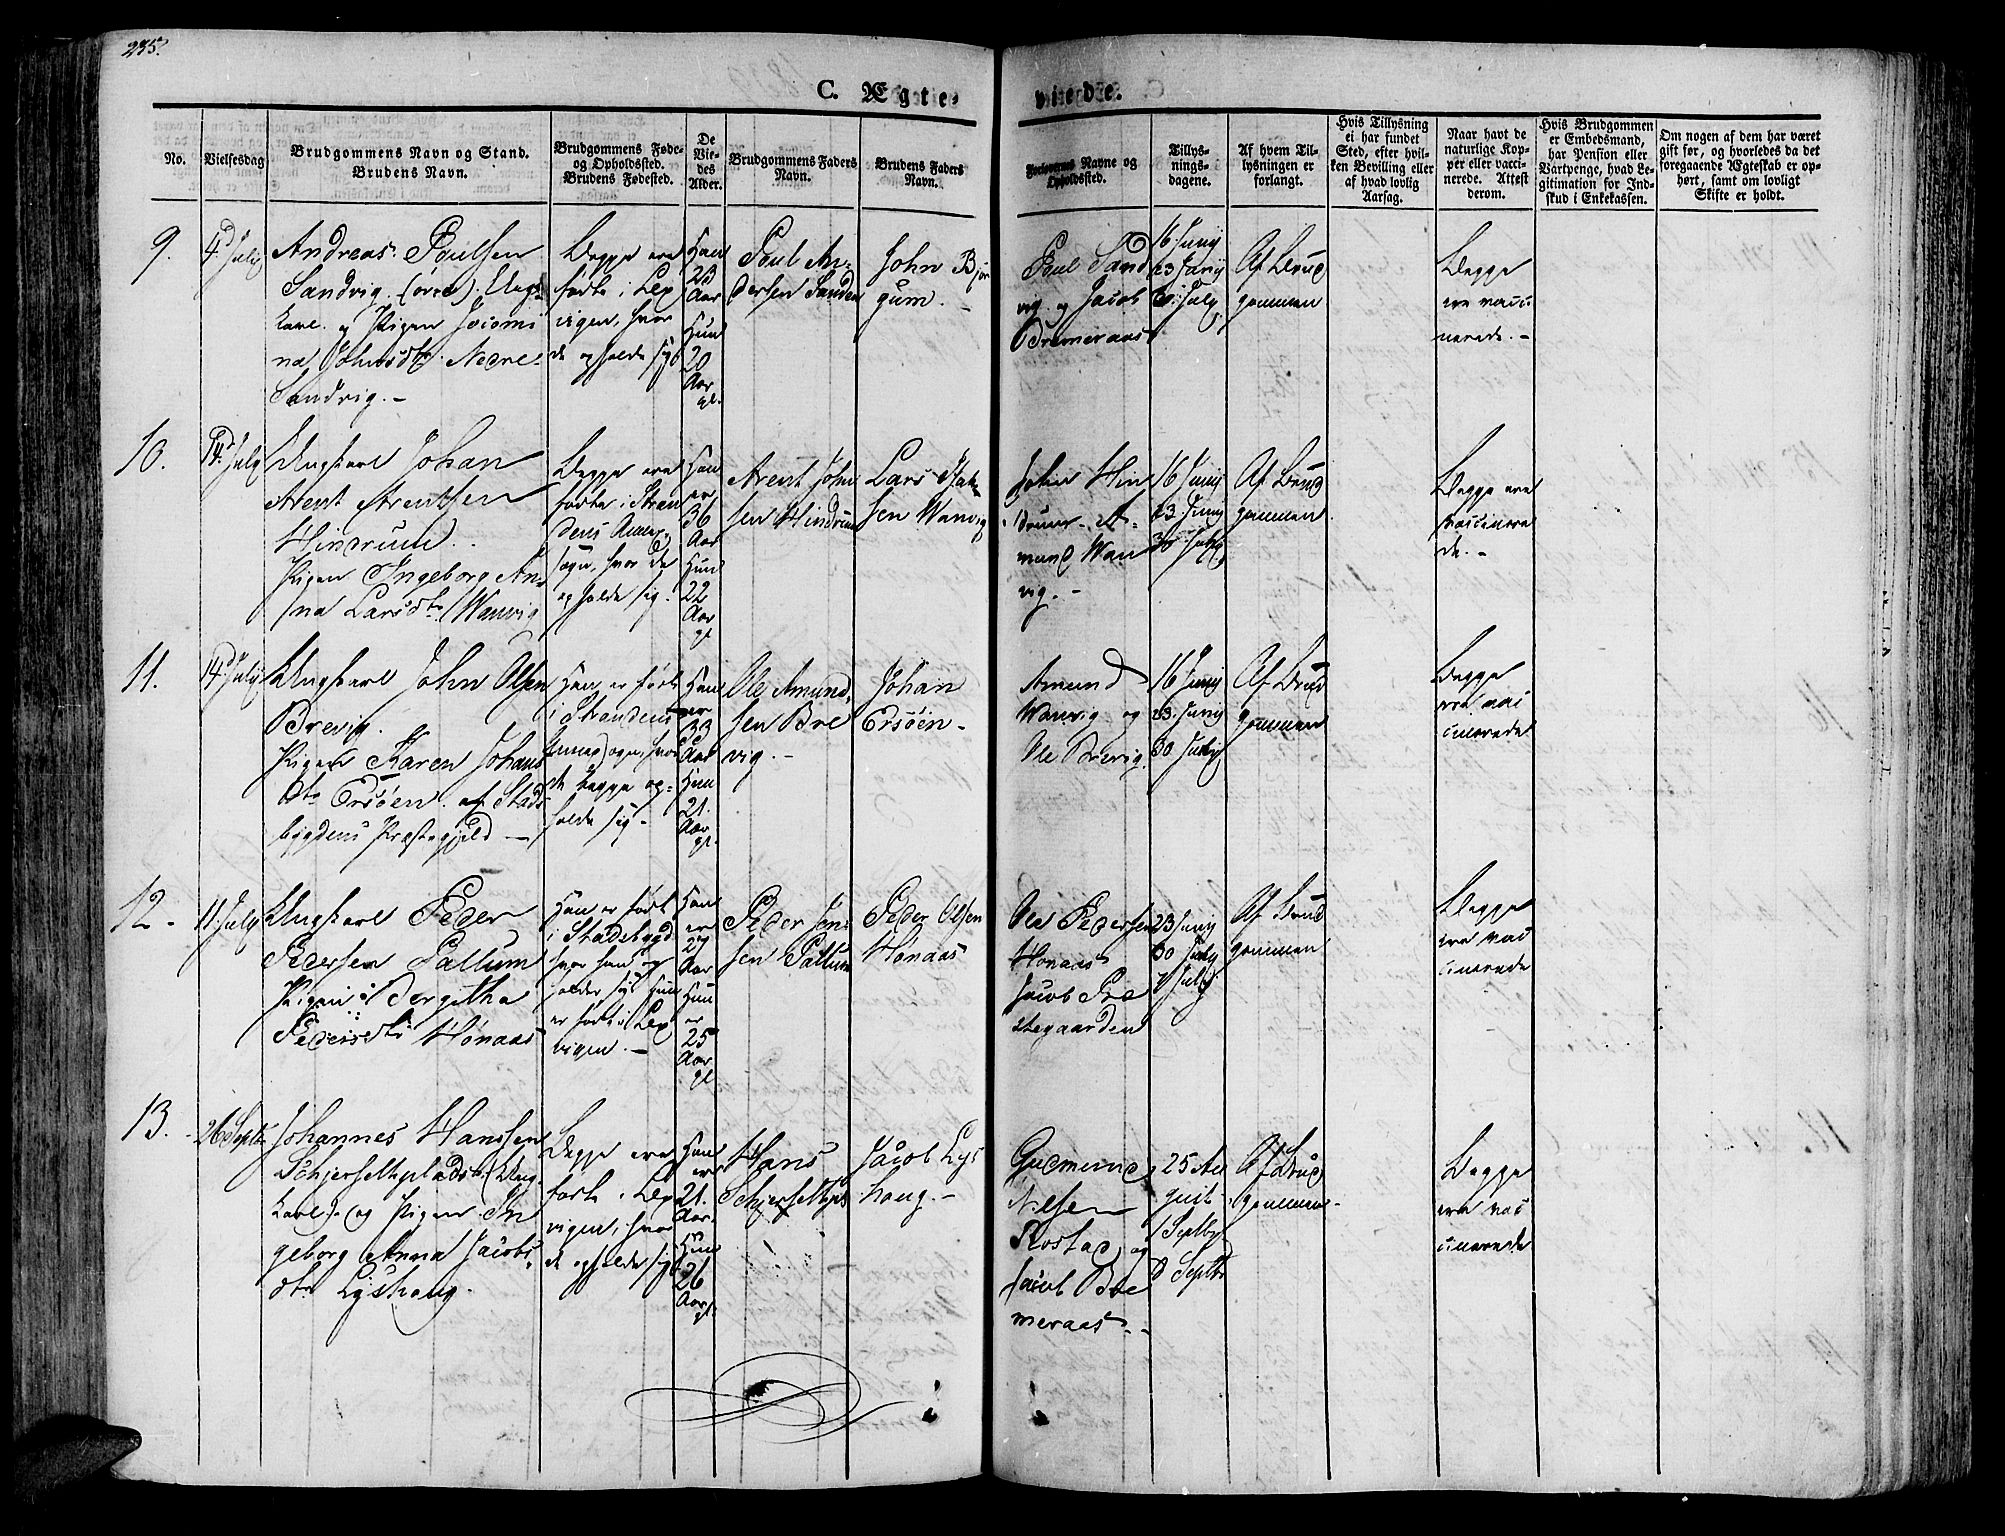 235.
C. Ægte-
viede.
No.
Vielsesdag
Brudgommens Navn og Stand.
Brudens Navn.
Brudgommens Føde-
og Opholdssted.
Brudens Fødested.
De
Vie-
des
Alder.
Brudgommens Faders
Navn.
Brudens Faders
Navn.
Forlovernes Navne og
Opholdssted.
Tillys-
nings-
dagene.
Af hvem Til-
lysningen er
forlangt.
Hvis Tillysning
ei har fundet
Sted, efter hvil-
ken Bevilling eller
af hvad lovlig
Aarsag.
Naar havt de
naturlige Kop-
per eller vacci-
nerede. Attest
derom.
Hvis Brudgommen
er Embedsmand,
har Pension eller
Vartpenge, hvad Le-
gitimation for Ind-
skud i Enkekassen.
Om nogen af dem har været
gift før, og hvorledes da det
foregaaende Ægteskab er op-
hørt, samt om lovligt
Skifte er holdt.
9.
4d July
Andreas Poulsen
Sandvig (øvre) Ung-
karl og Pigen Jocomi
na Johnsdtr Nedre
Sandvig. -
Begge ere
fødte i Lex
vigen, hvor
de opholde sig
Han
25
Aar
Hun
20
Aar
gl.
Poul An-
dersen Sandvi
John Bjør
gum. -
Poul Sand
vig og Jacob
Bremeraas
16 Juny
23 Juny
30 July
Af Brud
gommen
Begge
ere vacci
nerede. -
10.
14d July
Ungkarl Johan
Arent Arentsen
Hindrum.
Pigen Ingeborg An
na Larsdtr Wanvig
Begge ere
fødte i Stran
dens Annex
sogn, hvor de
opholde sig.
Han
er
36
Aar
Hun
22
Aar
gl
Arent John
sen Hindrum
Lars
sen Wanvig
John Hin
drum - A-
mund Wan
vig. -
16 Juny
23 Juny
30 July
Af Brud
gommen
Begge ere
vaccinere
de. -
11.
14d July
Ungkarl John Olsen
Brevig.
Pigen Karen Johans
dtr Ersøen af Stads
bygdens Præstegjeld -
Han er født
i Strandens
Annexsogn, hvor
de begge op-
holde sig -
Han
er
33
Aar
Hun
21.
Aar
gl.
Ole Amund
sen Bre
vig. -
Johan
Ersøen -
Amund
Wanvig og
Ole Brevig.
16 Juny
23. Juny
30 July
Af Brud
gommen
Begge
ere vac
cinerede
12 -
11 July
Ungkarl Peder
Pedersen Pallum
Pigen Bergitha
Pedersdtr Hønaas
Han er født
i Stadsbygd
hvor han op
holder sig Hun
er født i Lex
vigen. -
Han
er
27
Aar
Hun
er
25
Aar
gl
Peder Jen-
sen Pallum
Peder Olsen
Hønaas
Ole Pedersen
Hønaas
Jacob Præ
stegaarden
23 Juny
30 July
7 July
Af Brud
gommen
Begge
ere vac
cinerede
13. -
26 Septbr
Johannes Hanssen
Schjerfeltpladsen (Ung-
karl) og Pigen In
geborg Anna Jacobs
dtr Lyshaug.
Begge ere
fødte i Lex
vigen, hvor
de opholde sig
Han
er
21.
Aar.
Hun
26
Aar
gl.
Hans
Jacob Lys
haug. -
Gudmund
Nelsen
Rostad og
Jacob Bre
meraas. -
25 Au
gust
1 Septbr
8 Septbr
Af Brud
gommen.
Begge
ere vac
cinerede